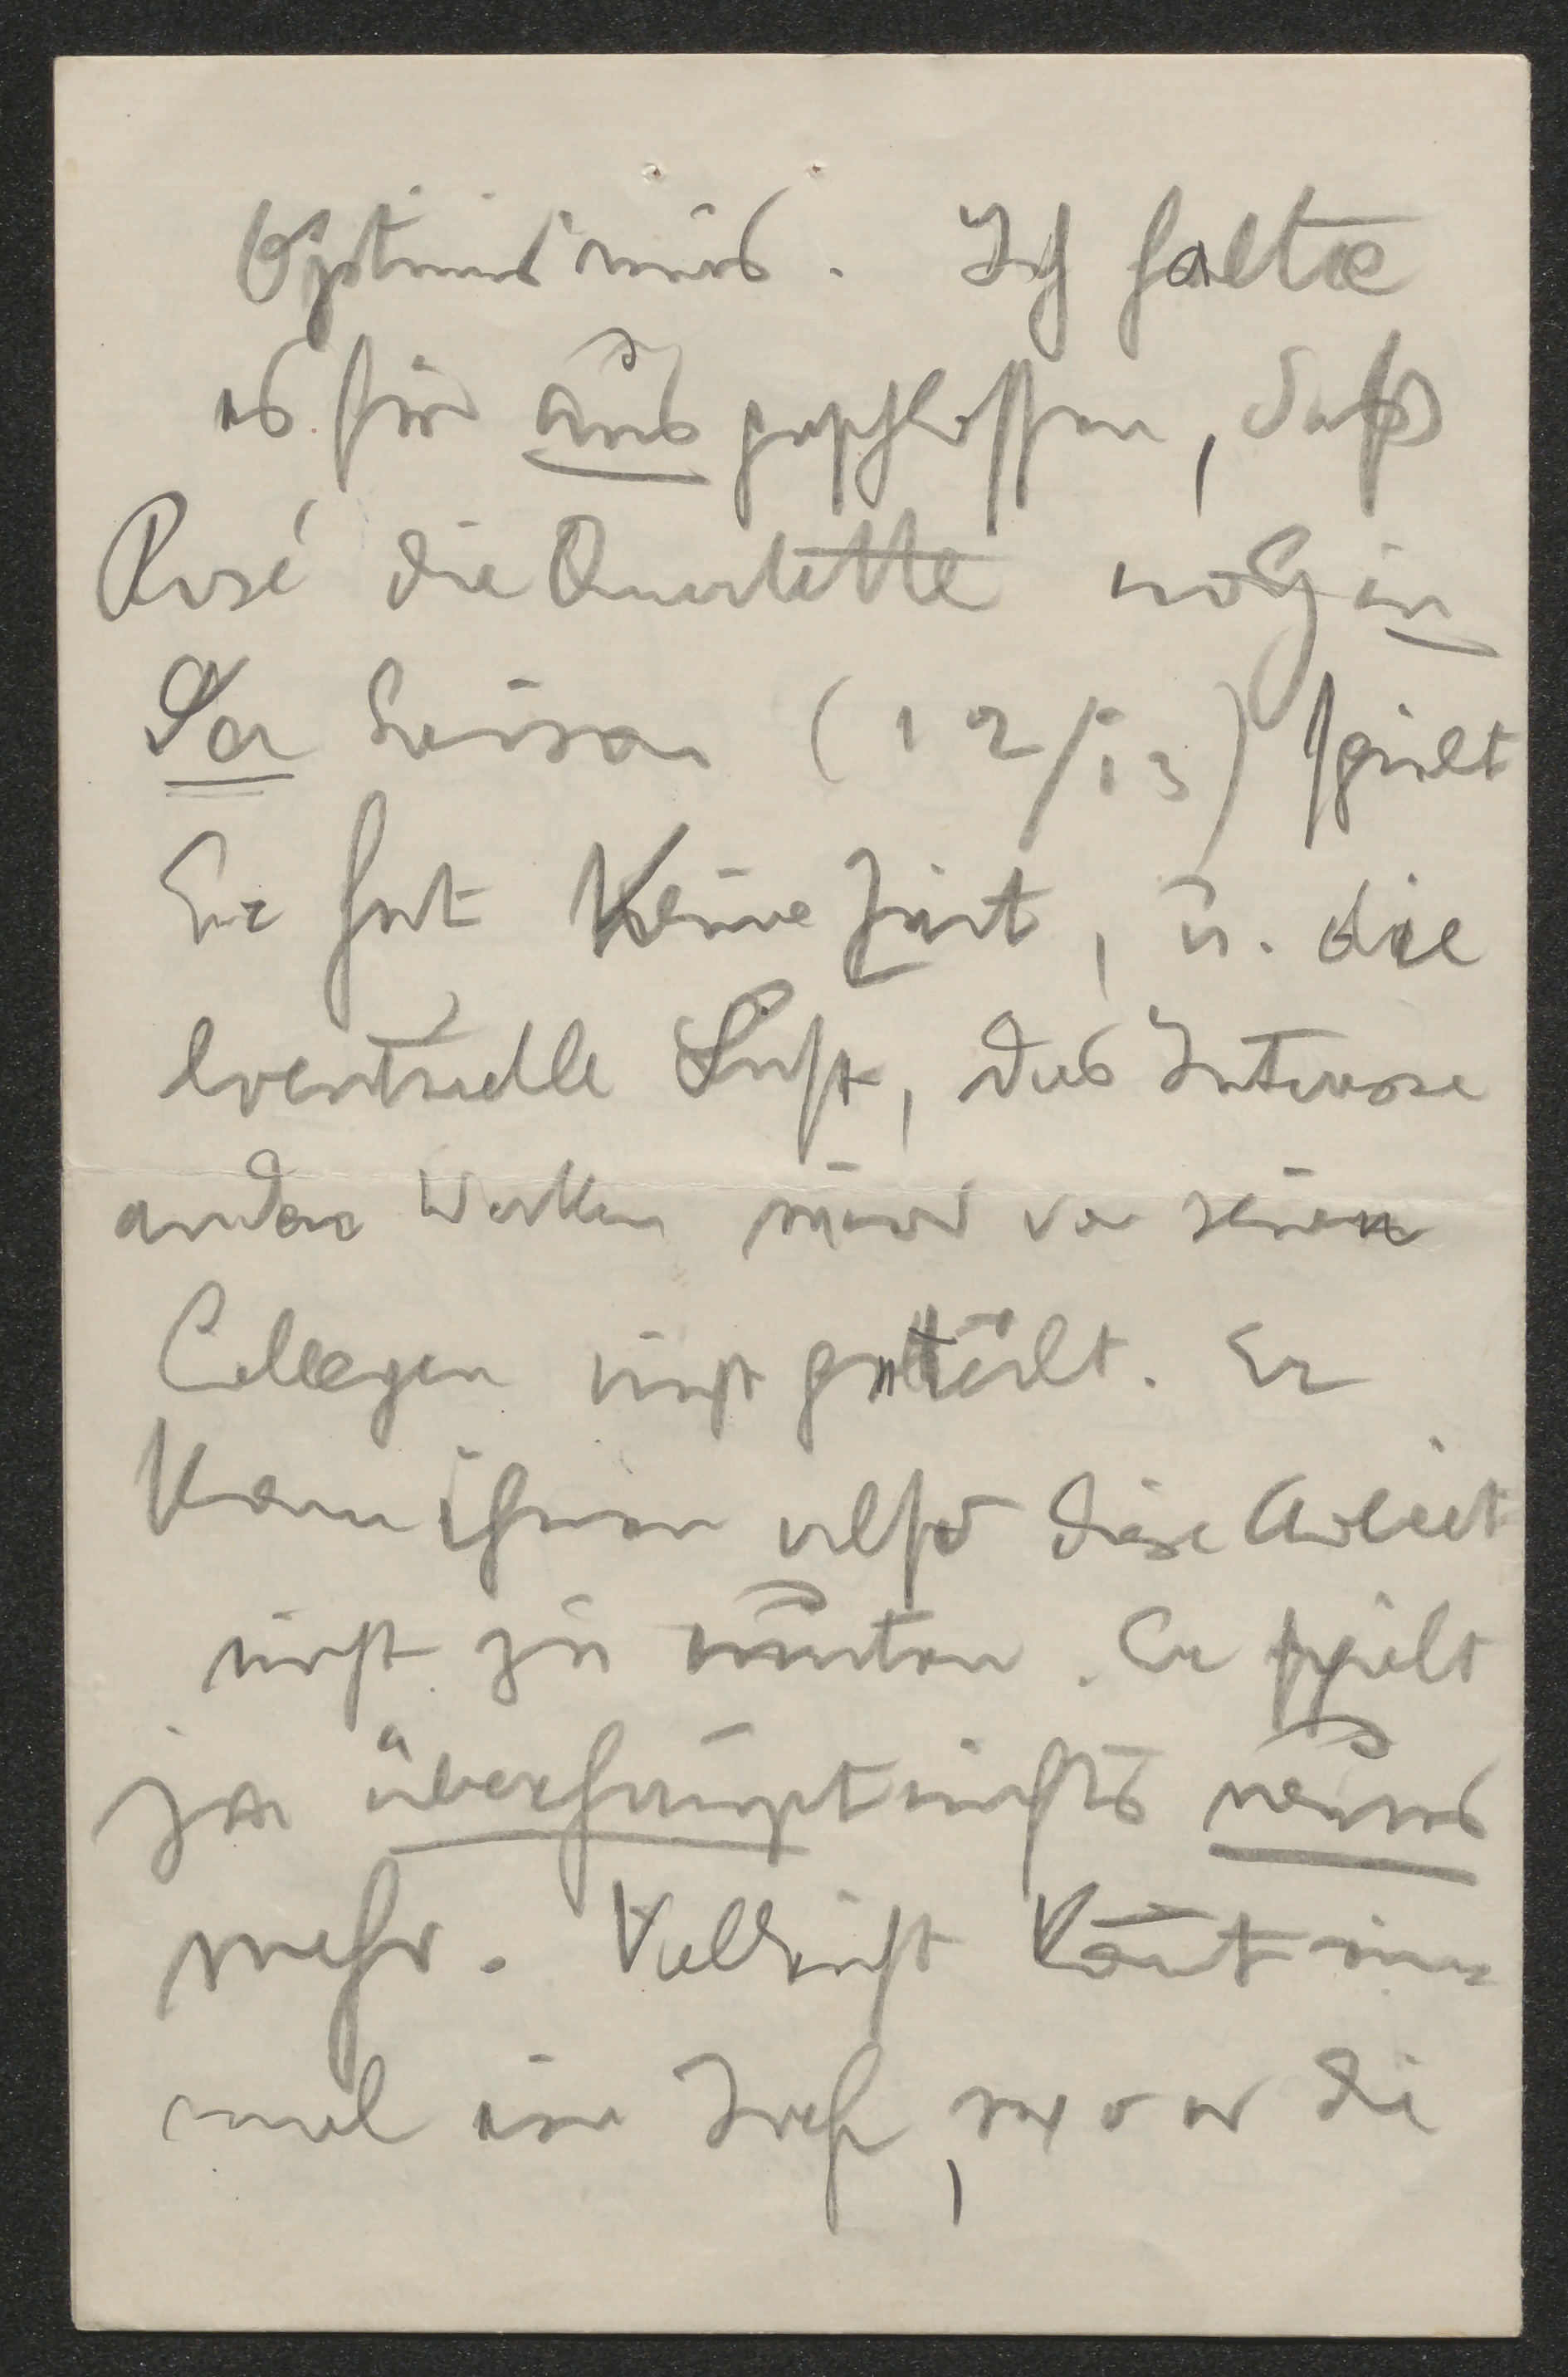 Optimismus. Ich halte
es für ausgeschlossen, dass
Rosé die Quartette noch in
der Saison (12/13) spielt
Er hat keine Zeit, u. die
eventuelle Lust, das Interesse
an den Werken wird von seinen
Collegen nicht geteilt. Er
kann ihnen also diese Arbeit
nicht zu muten. Er spielt
ja überhaupt nichts neues
mehr. Vielleicht kommt ein
mal ein Jahr, wo er die